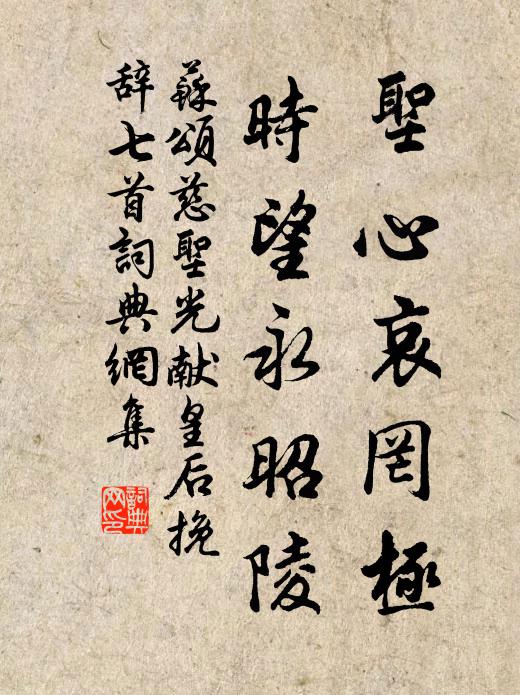 聖心哀罔極
時望永昭陵
蘇頌慈聖光献皇后挽
辞七首詞典網集
詞典网印